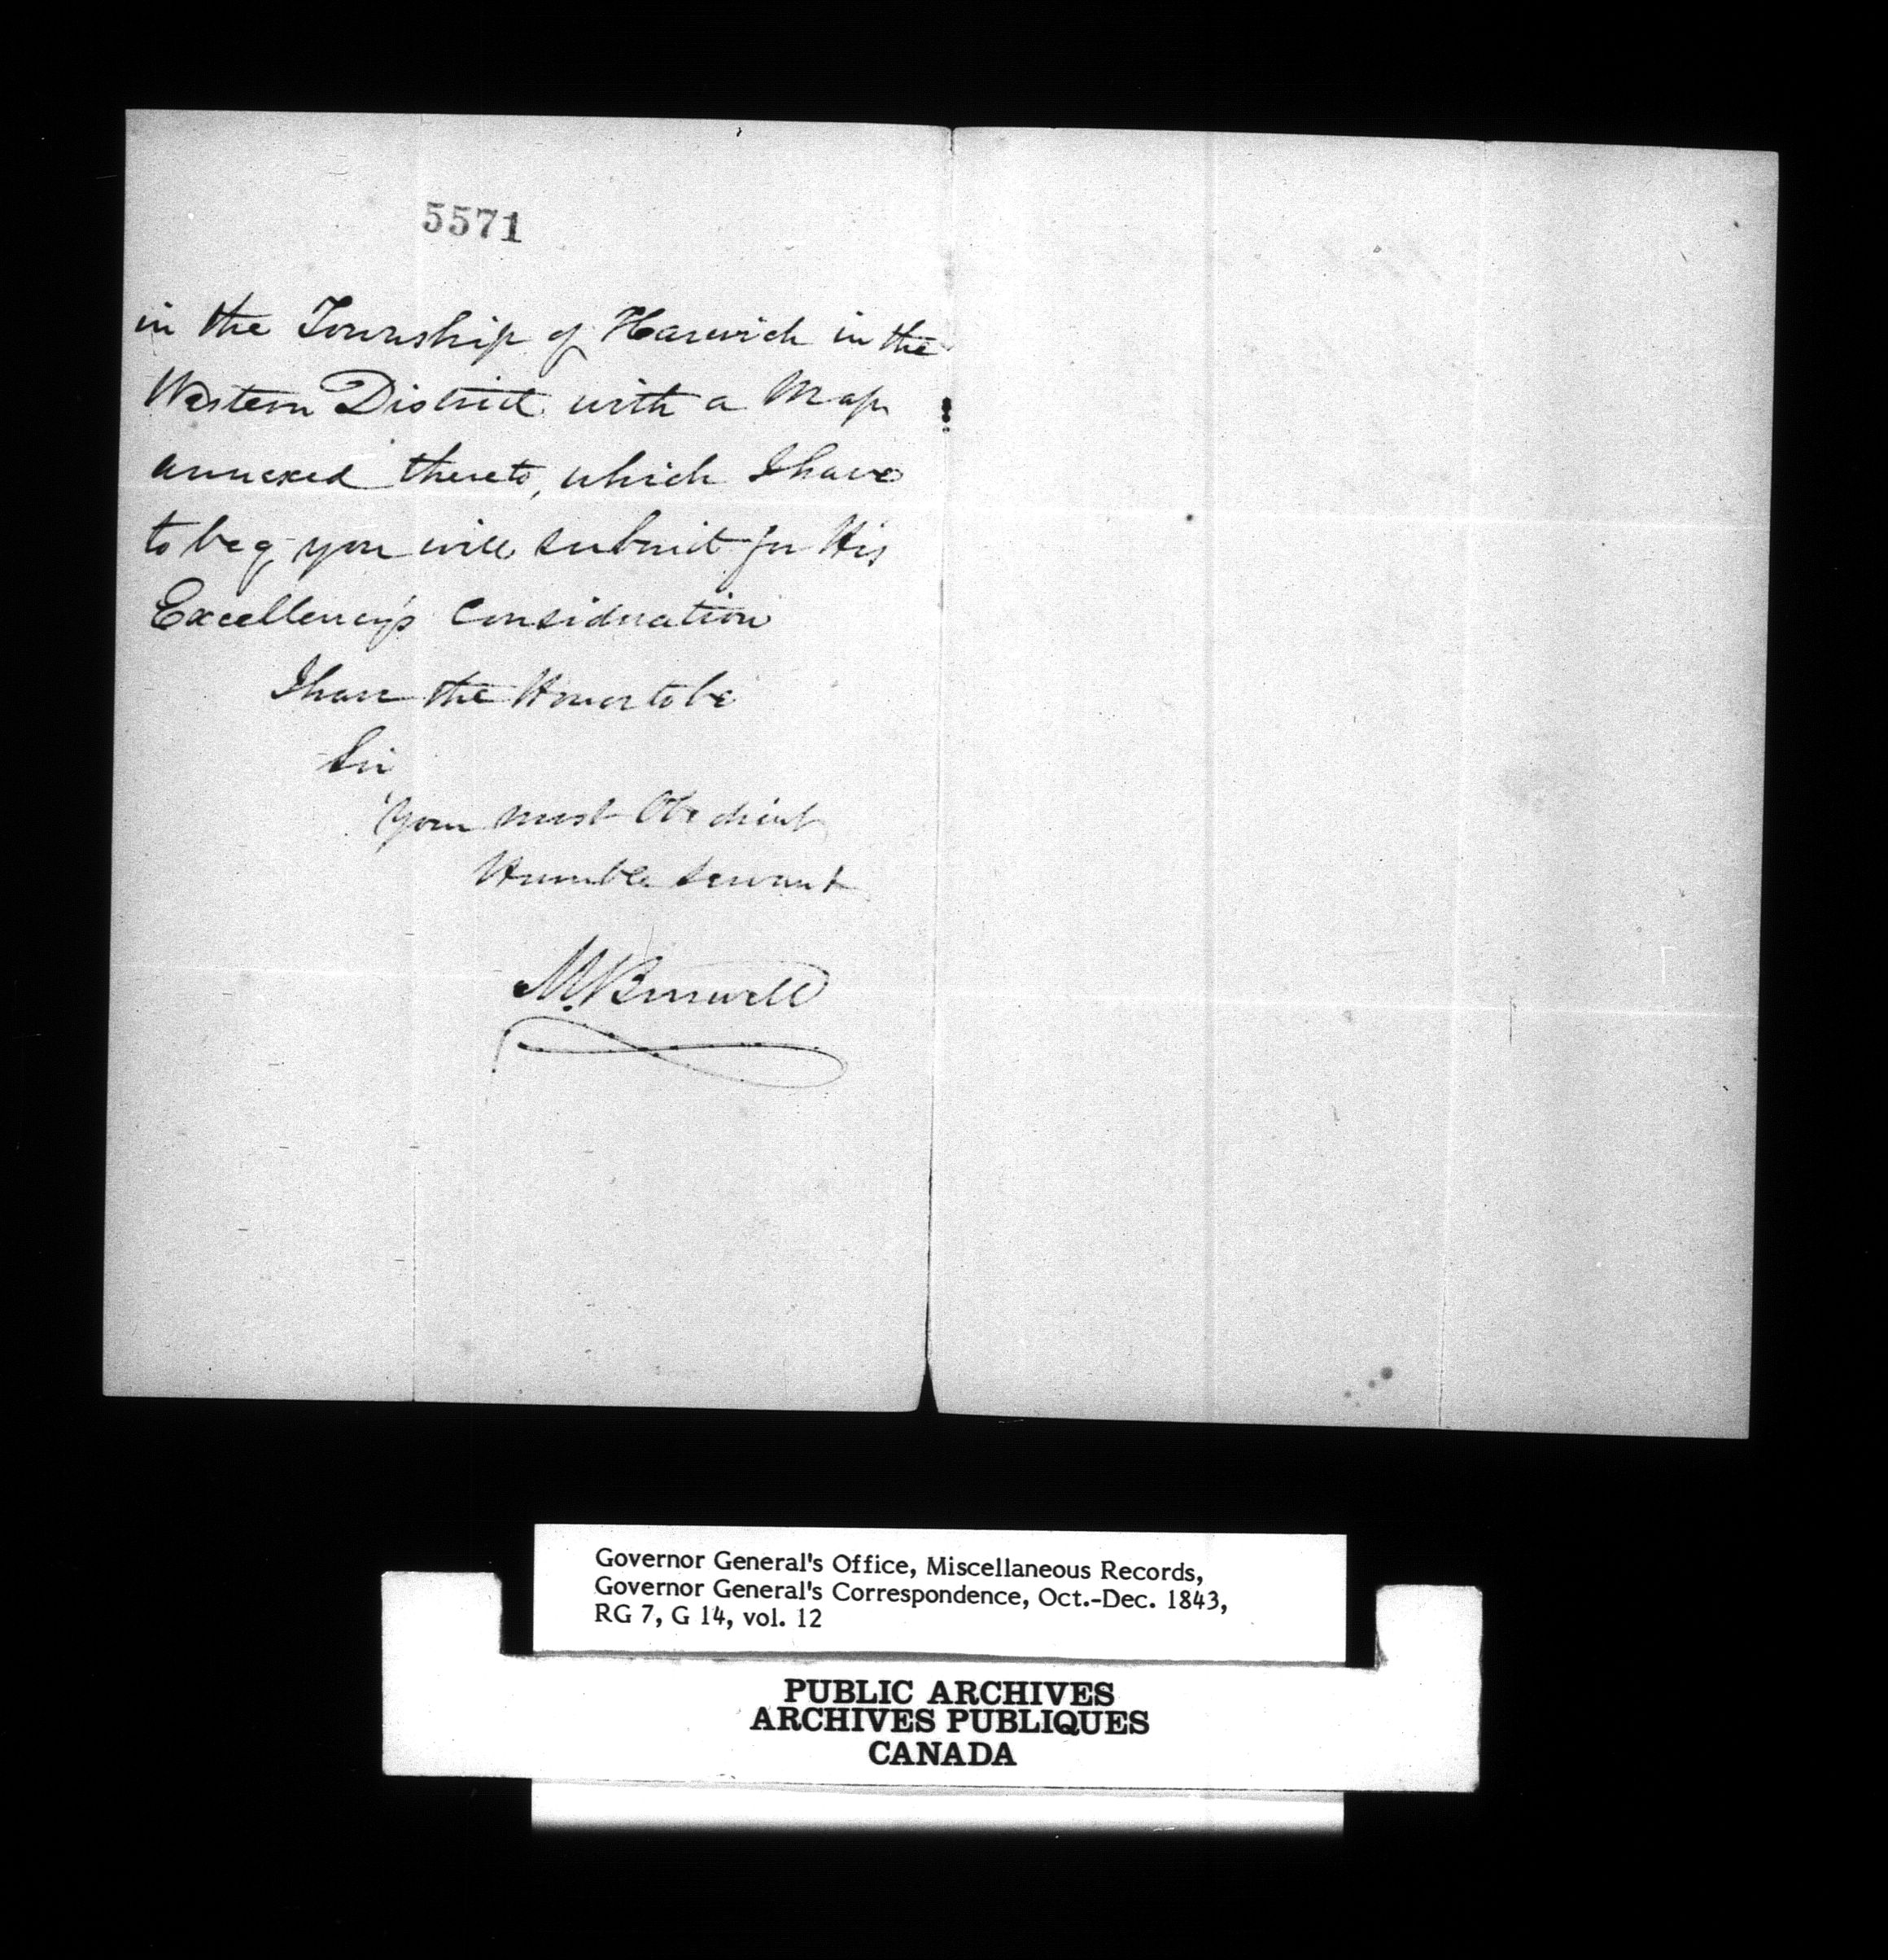 5571
in the Township of Harwich in the
Western District with a Map
annexed thereto, which I have
to beg you will submit for His
Excellency's Consideration
I have the Honor to be
Sir
Your most Obedient
Humble Servant
M. Burwell
Governor General's Office, Miscellaneous Records,
Governor General's Correspondence, Oct.-Dec. 1843,
RG 7, G 14, vol. 12
PUBLIC ARCHIVES
ARCHIVES PUBLIQUES
CANADA